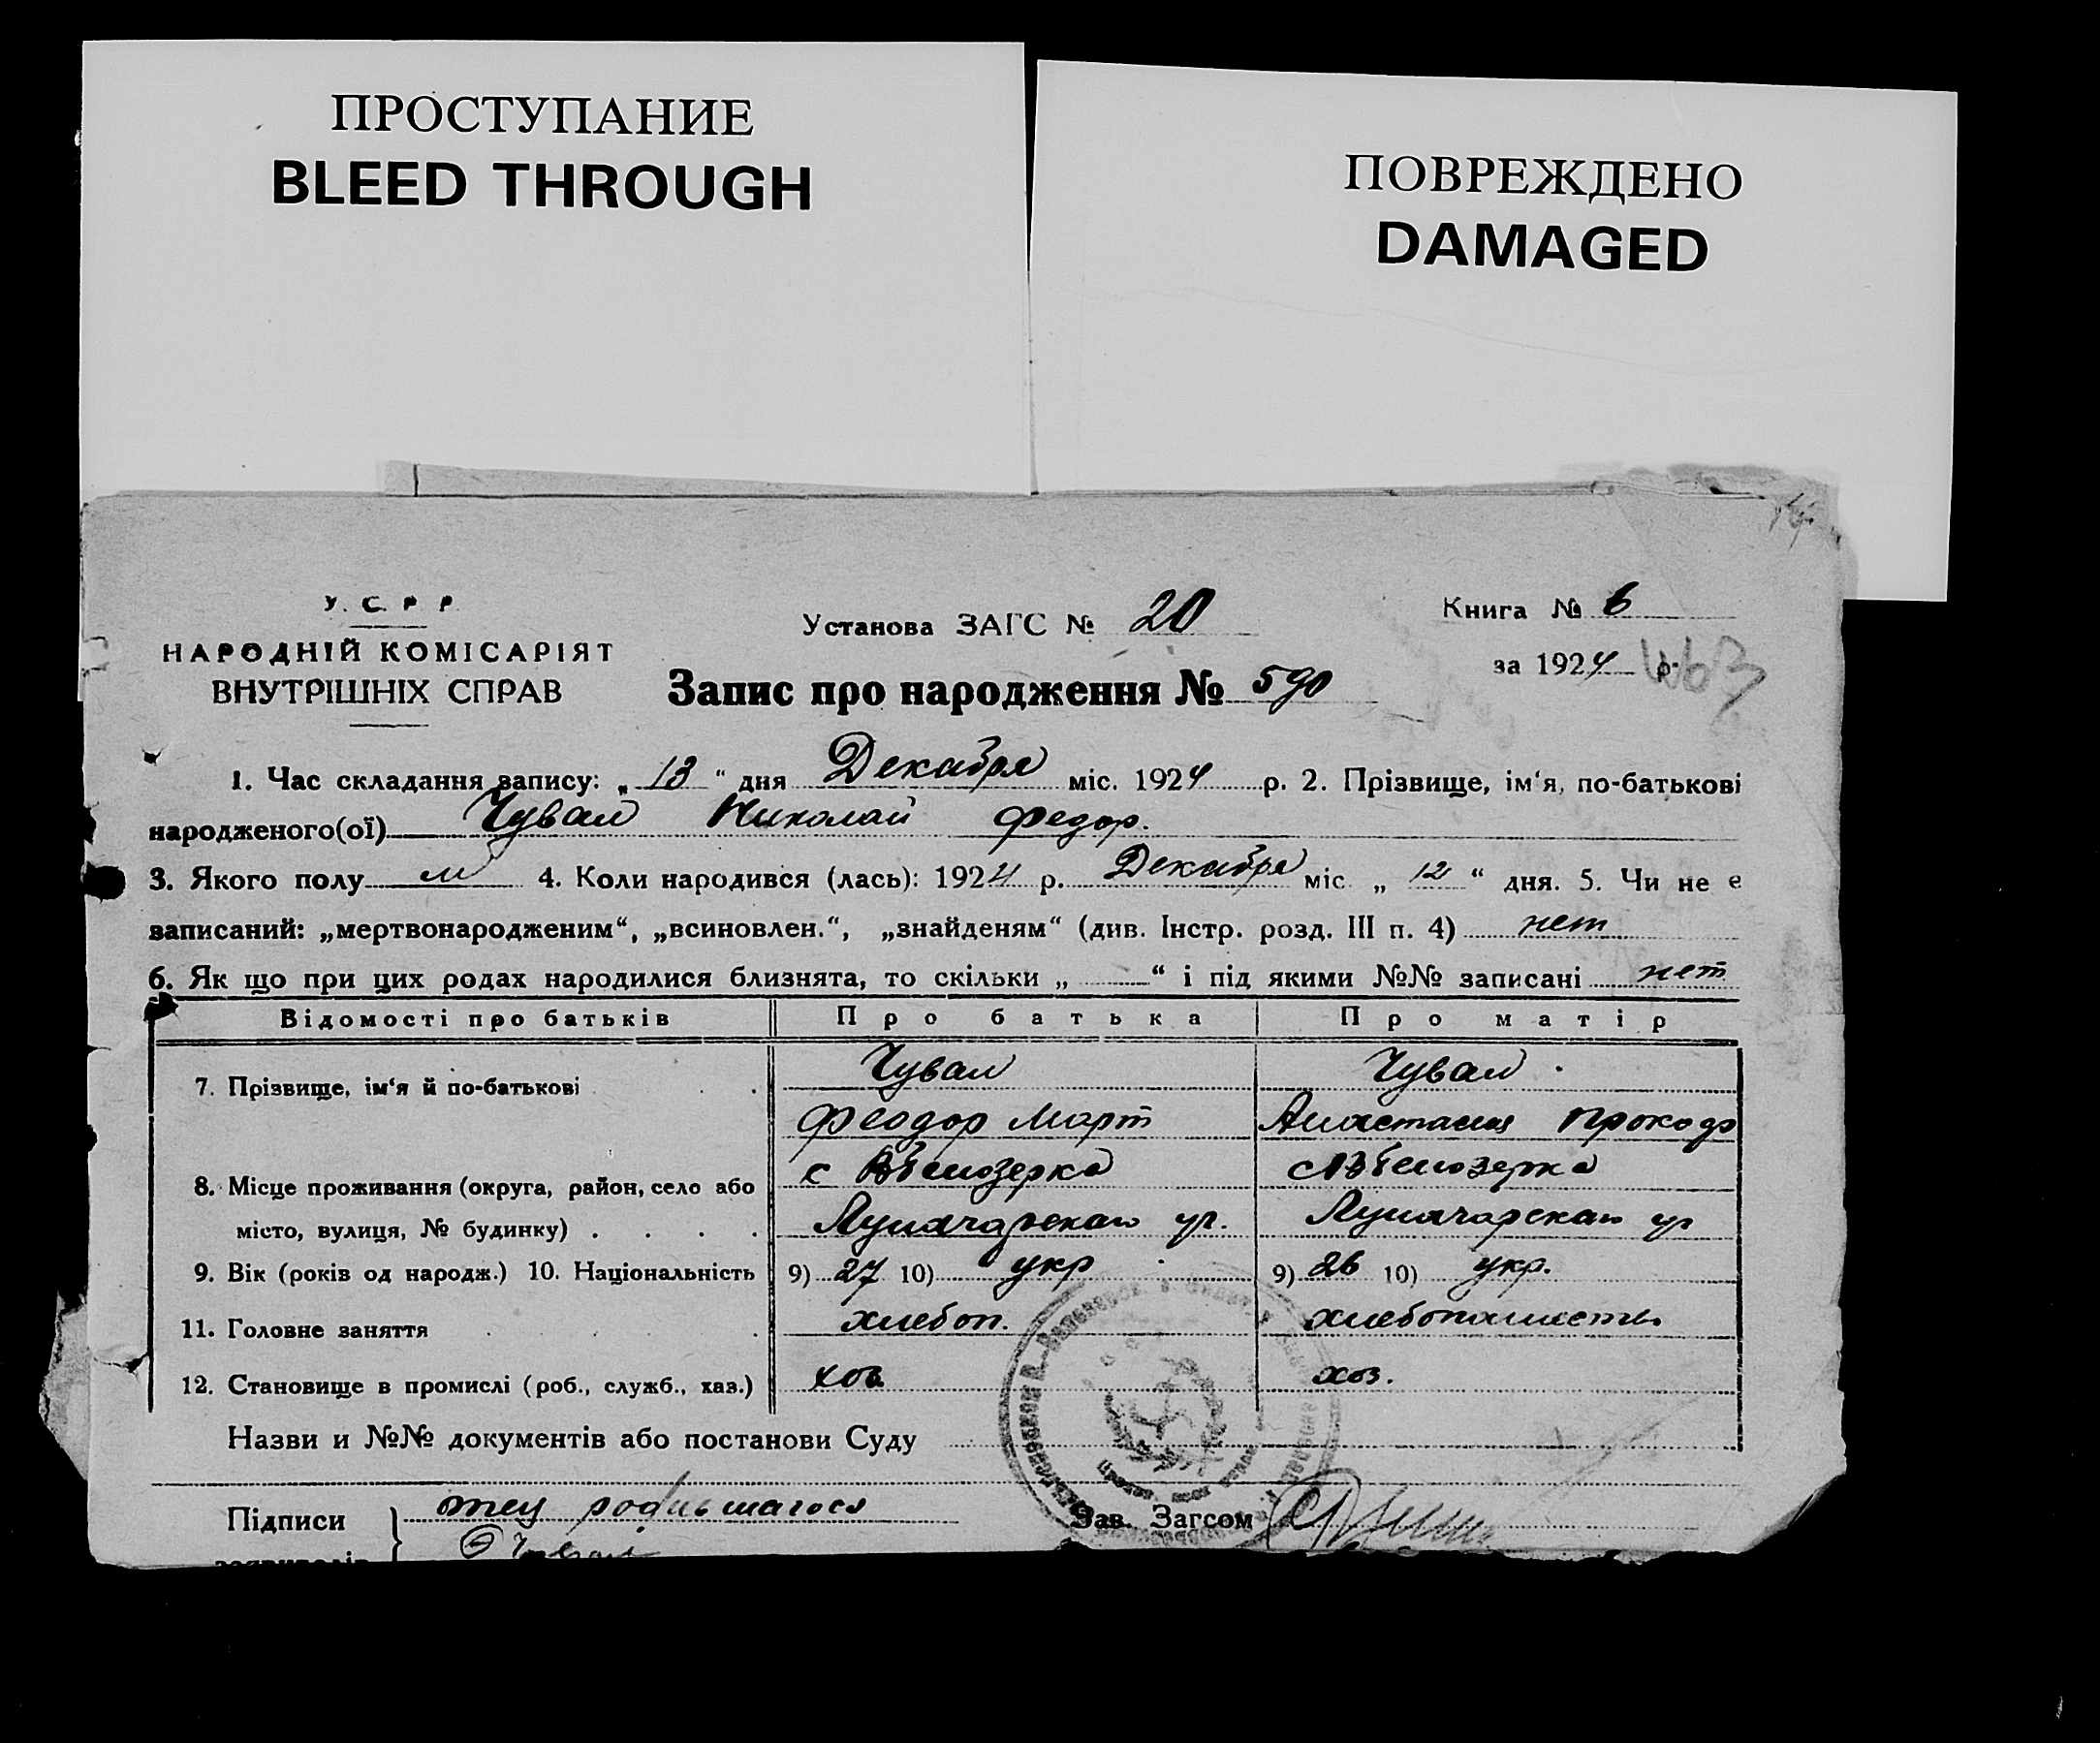 ПРОСТУПАНИЕ
BLEED THROUGH
ПОВРЕЖДЕНО
DAMAGED
У. С. Р. Р.
НАРОДНІЙ КОМІСАРІЯТ
ВНУТРІШНІХ СПРАВ
Установа ЗАГС № 20
Книга № 6
за 1924 р. 463
Запис про народження № 590
1. Час складання запису: „13“ дня Декабря міс. 1924 р. 2. Прізвище, ім‘я, по-батькові
народженого(ої) Чувал Николай Федор.
3. Якого полу м 4. Коли народився (лась): 1924 р. Декабря міс. „12“ дня. 5. Чи не є
записаний: „мертвонародженим“, „всиновлен.“, „знайденям“ (див. Інстр. розд. III п. 4) нет
6. Як що при цих родах народилися близнята, то скільки „ “ і під якими №№ записані нет
Відомості про батьків Про батька Про матір
7. Прізвище, ім‘я й по-батькові Чувал Чувал
Феодор Март Анастасия Прокоф
8. Місце проживання (округа, район, село або с Белозерка с Белозерка
місто, вулиця, № будинку) . . . . Луначарская ул. Луначарская ул
9. Вік (років од народж.) 10. Національність 9) 27 10) укр 9) 26 10) укр.
11. Головне заняття хлебоп. хлебопашеств.
12. Становище в промислі (роб., служб., хаз.) хоз хоз.
Назви и №№ документів або постанови Суду
Підписи отец родившагося Зав. Загсом
Ф Чувал